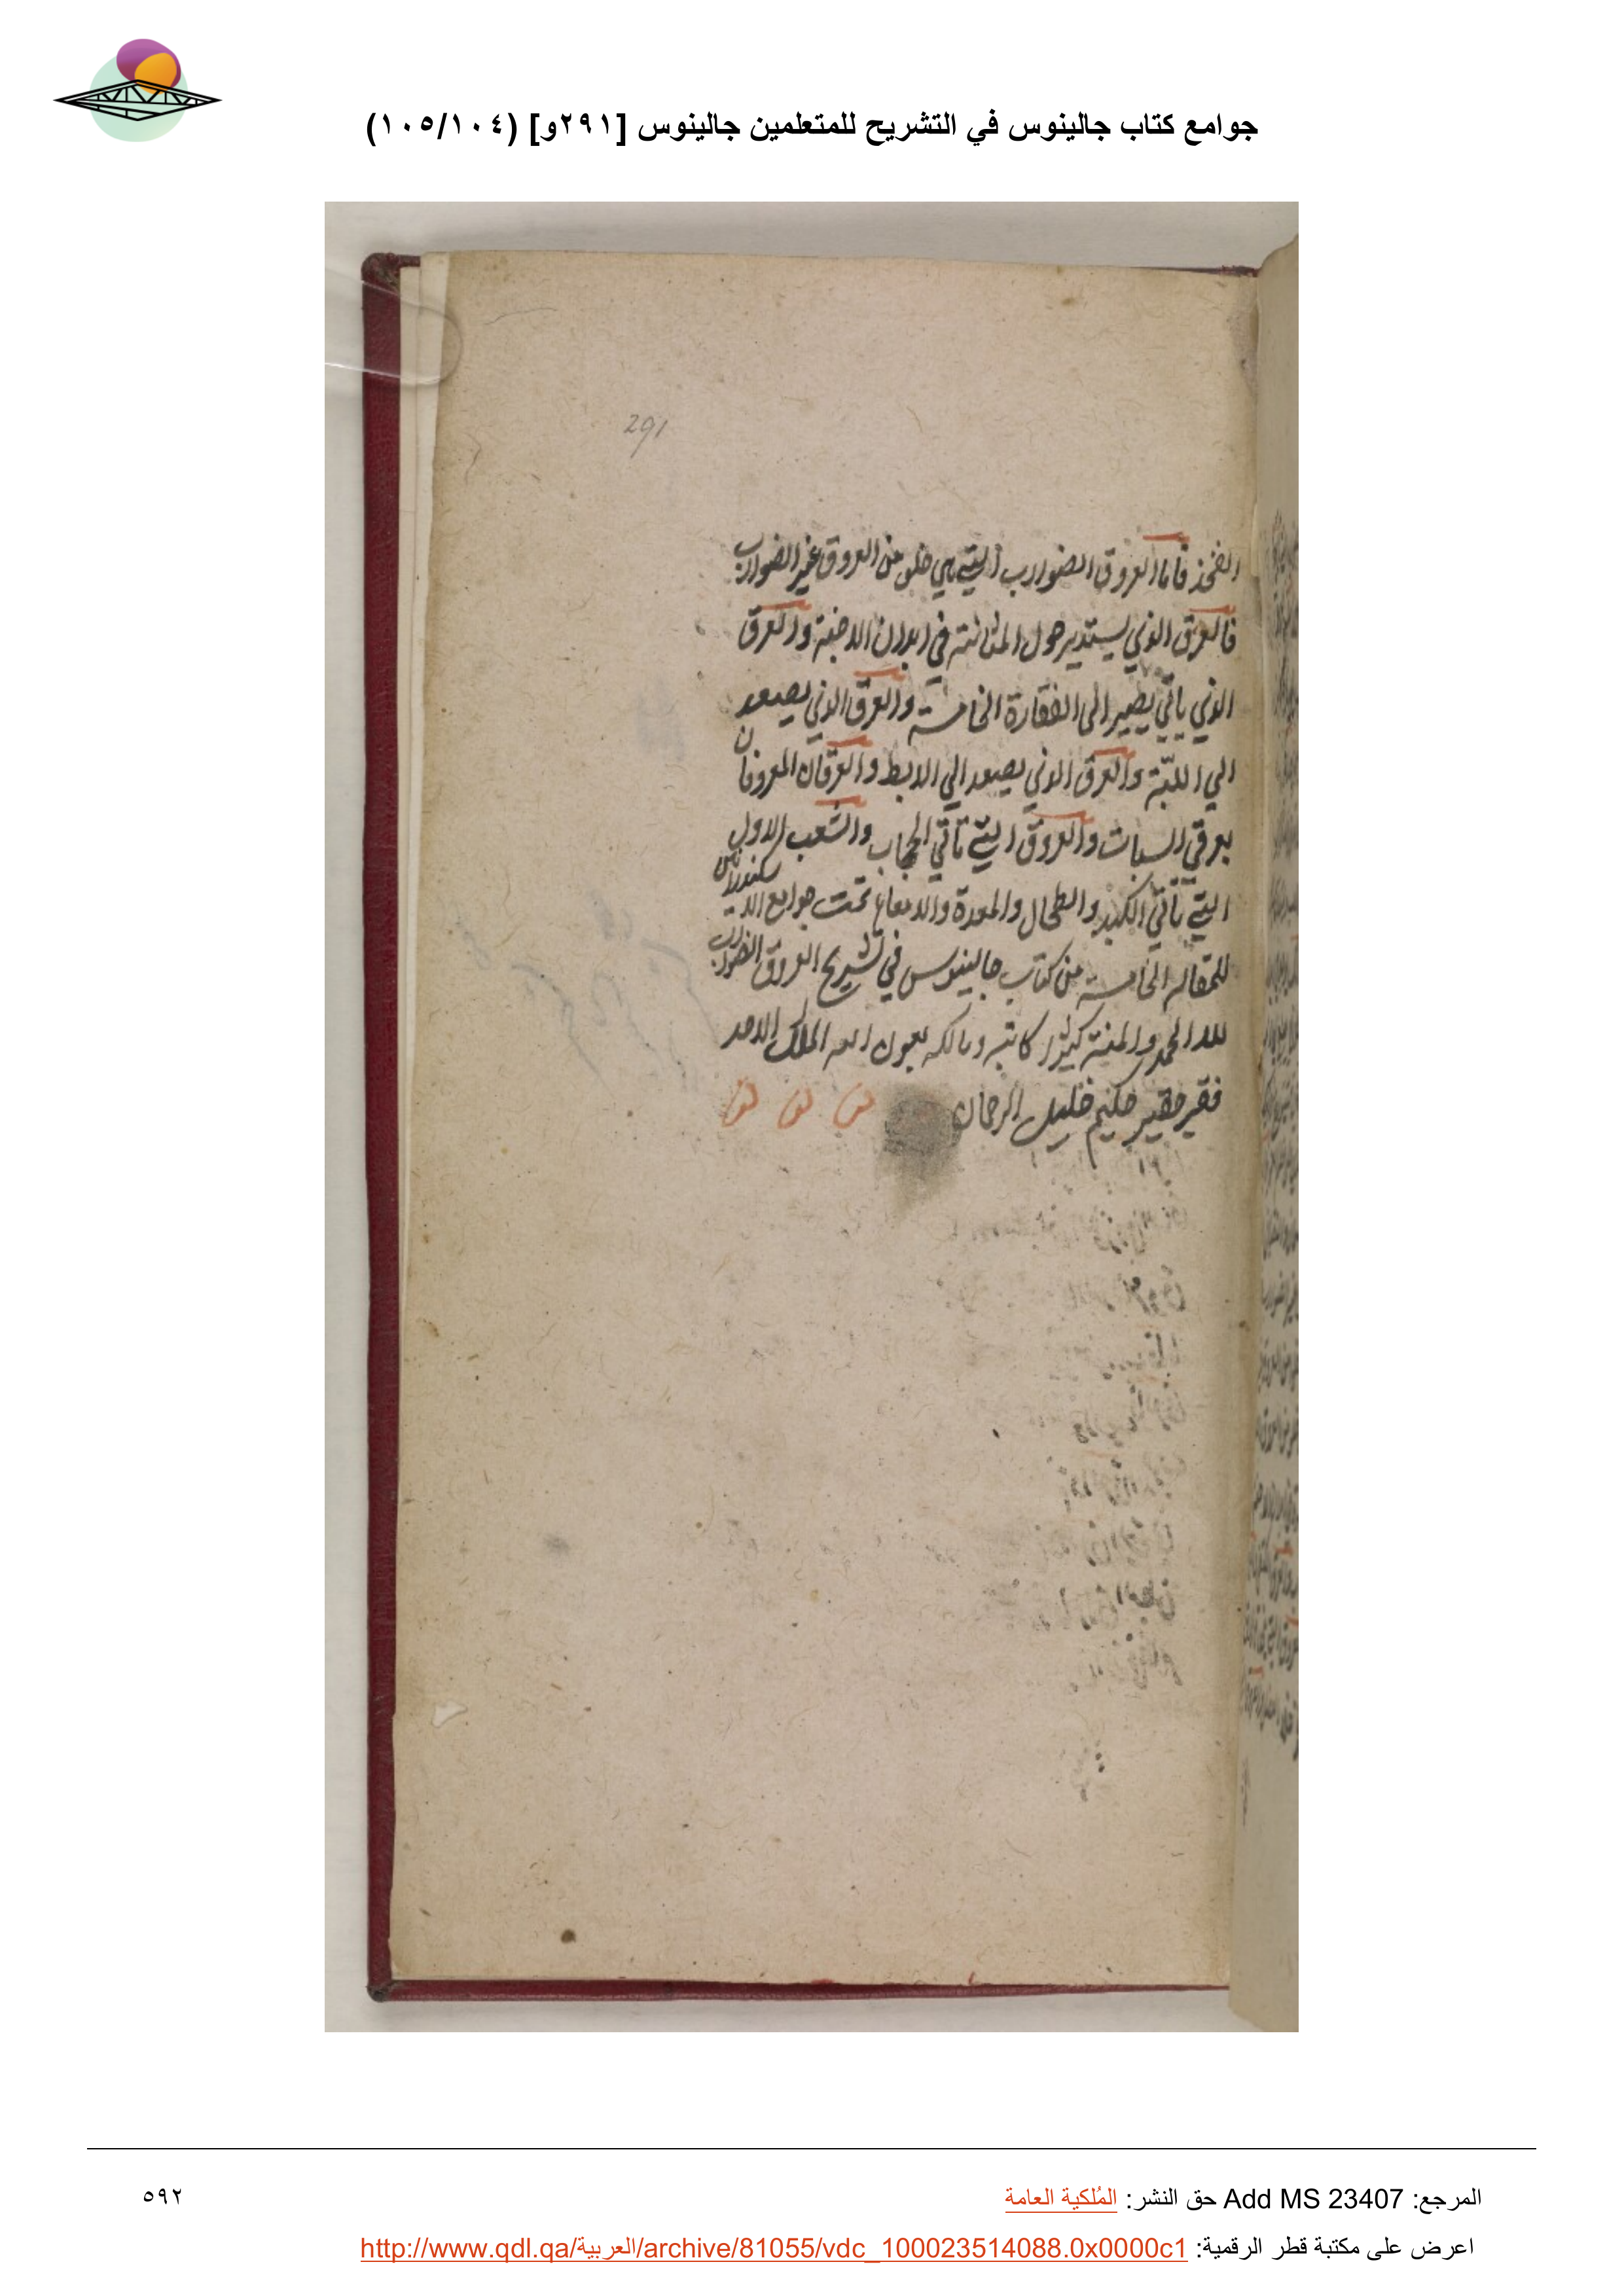 جوامع كتاب جالينوس في التشريح للمتعلمين جالينوس [٢٩١و] (١٠٥/١٠٤)
291
الفخذ فاما العروق الضوارب التي هي خلو من العروق غير الضوارب
فالعرق الذي يستدير حول المثانة في ابدان الاجنة والعرق
الذي ياتي يصير الى الفقارة الخامسة والعرق الذي يصعد
الي اللبّة والعرق الذي يصعد الي الابط والعرقان المعروفان
بعرقي السبات والعروق التي تأتي الحجاب والشعب الاول
التي تأتي الكبد والطحال والمعدة والامعاء تمت جوامع الاسكندرانين
للمقاله الخامسة من كتاب جالينوس في تشريح العروق الضوارب
لله الحمد والمنة كثيرا كاتبه ومالكه بعون الله الملك الاحد
فقير حقير حكيم خليل الرحمان
المرجع: Add MS 23407 حق النشر: المُلكية العامة
٥٩٢
اعرض على مكتبة قطر الرقمية: http://www.qdl.qa/العربية/archive/81055/vdc_100023514088.0x0000c1